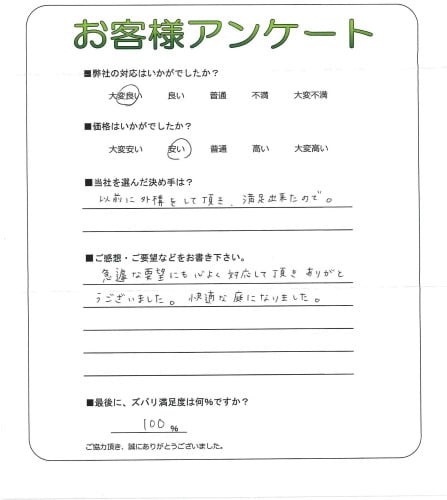 お客様アンケート
■弊社の対応はいかがでしたか?
大変良い 良い 普通 不満 大変不満
■価格はいかがでしたか?
大変安い 安い 普通 高い 大変高い
■当社を選んだ決め手は?
以前に外構をして頂き、満足出来たので。
■ご感想・ご要望などをお書き下さい。
急遽な要望にも心よく対応して頂きありがと
うございました。快適な庭になりました。
■最後に、ズバリ満足度は何%ですか?
100 %
ご協力頂き、誠にありがとうございました。